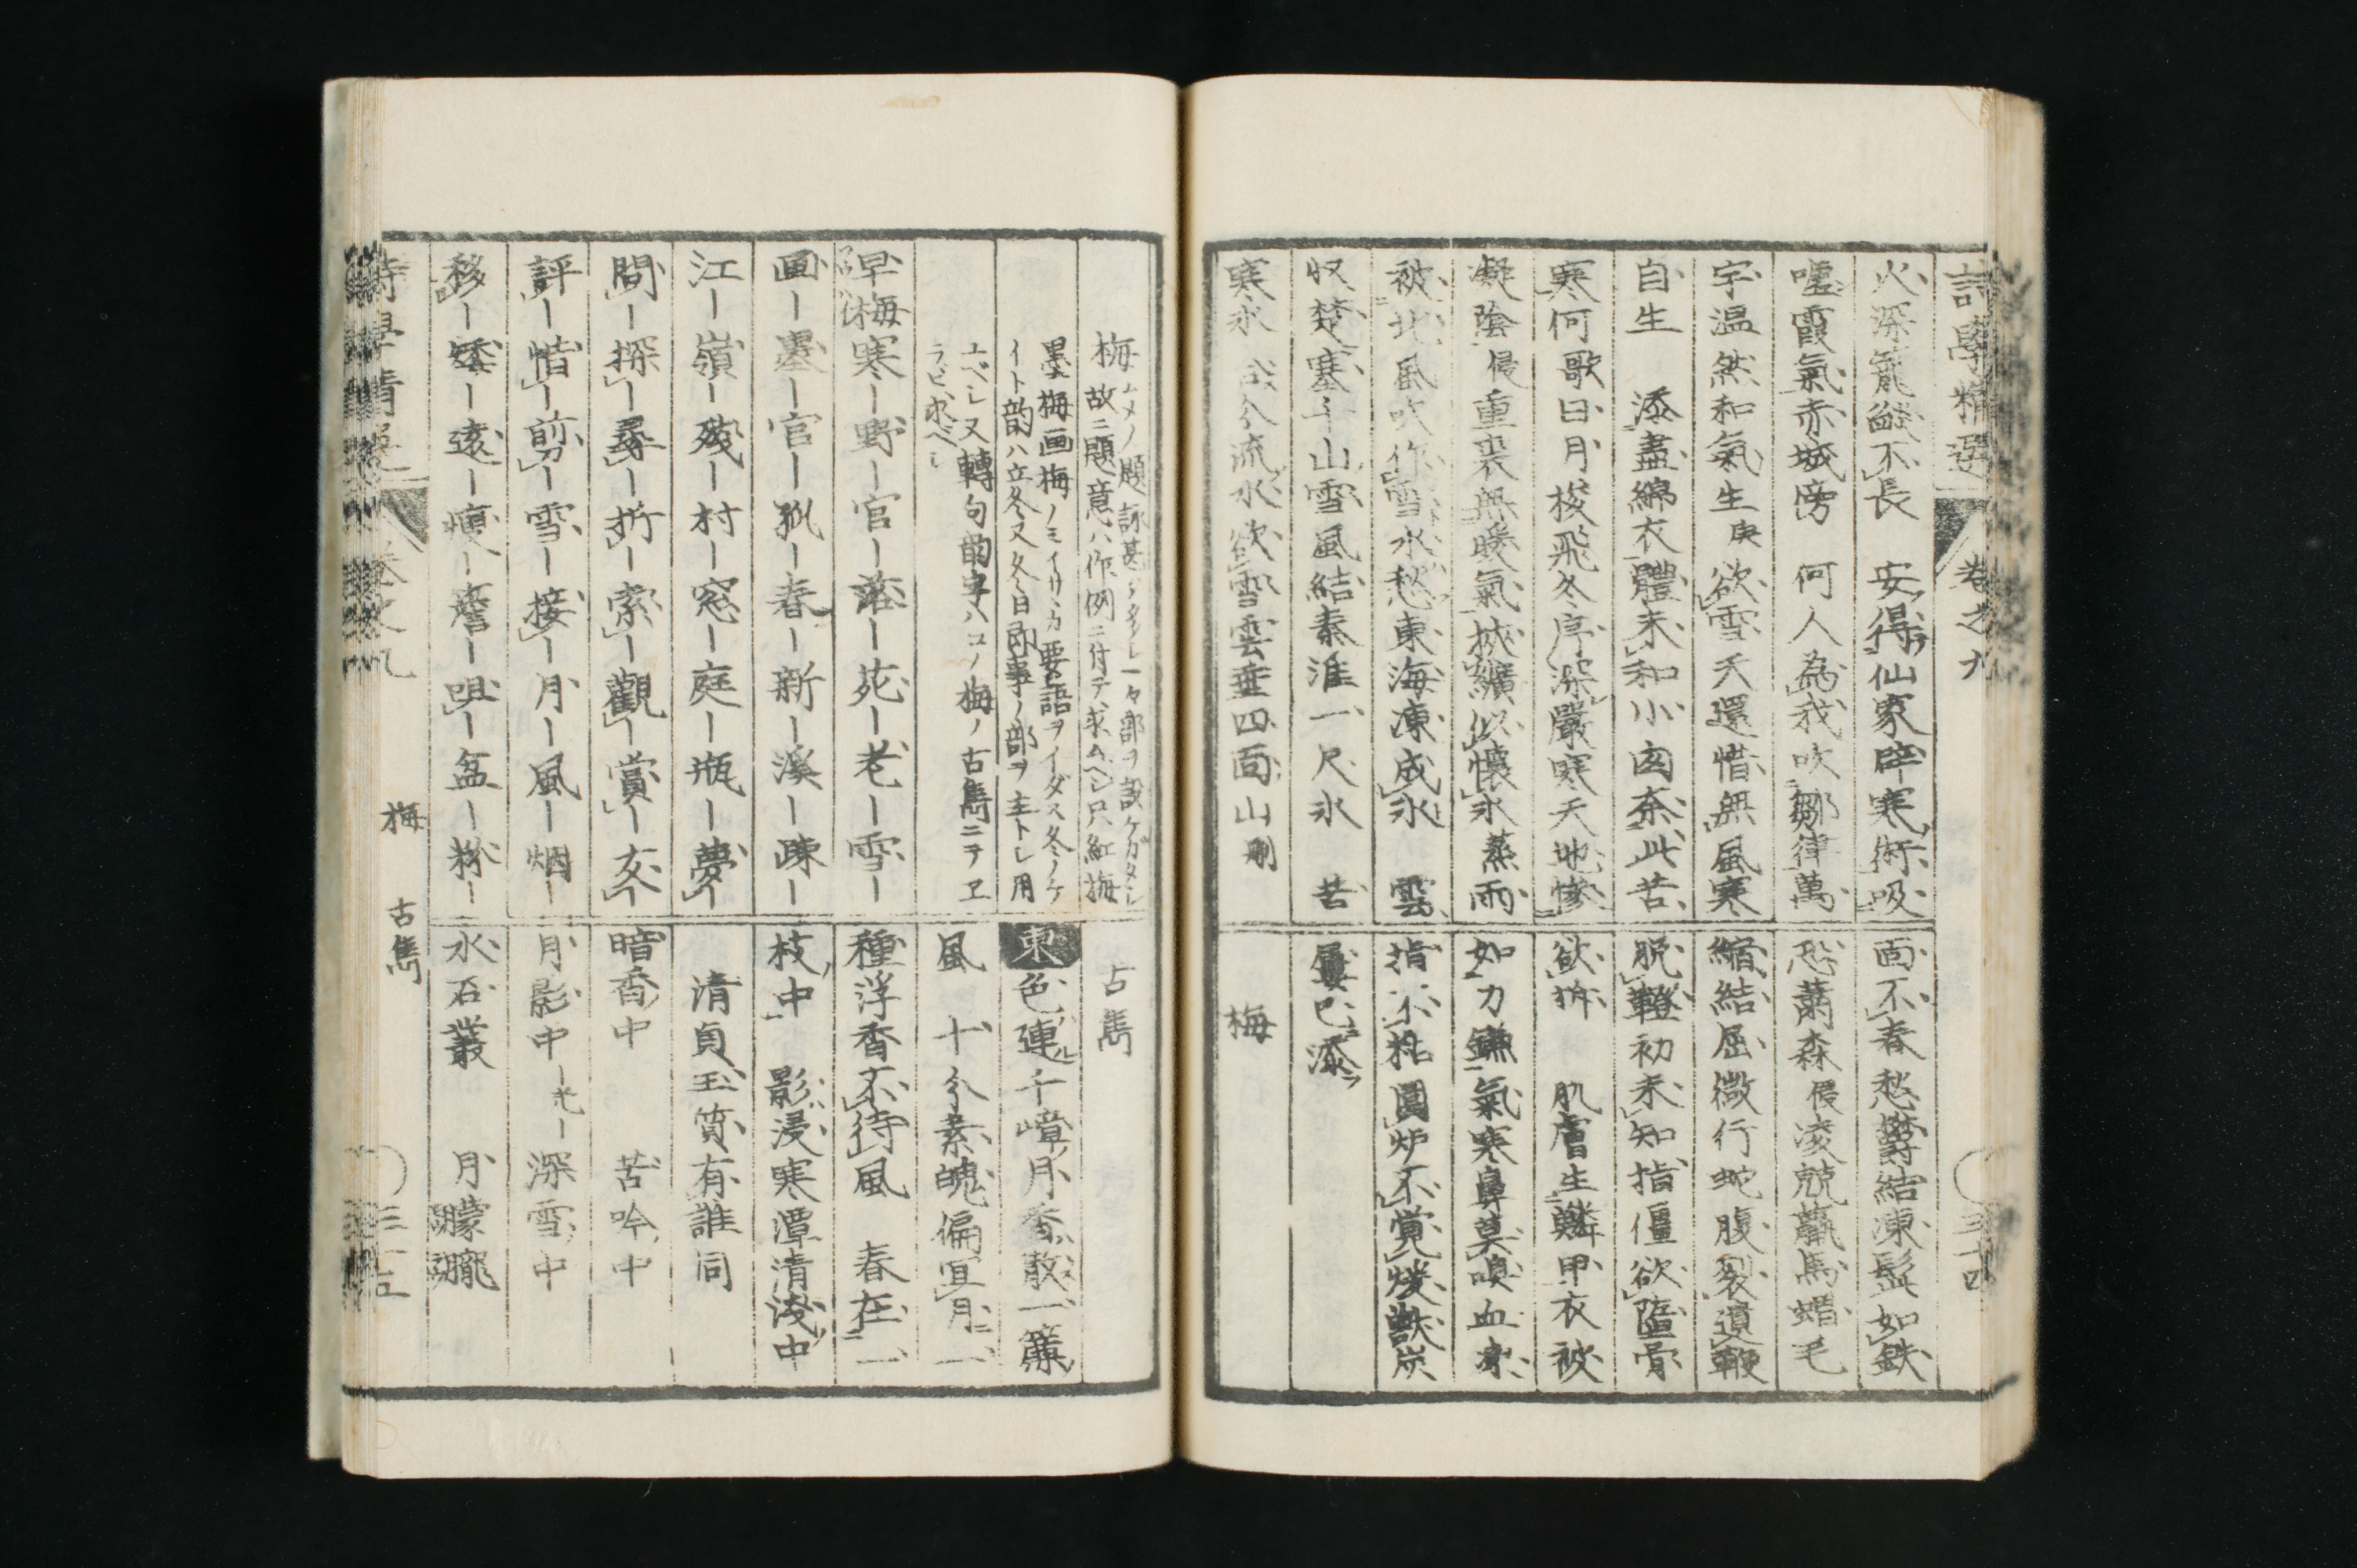 詩學精選 卷之九 三十四
火深籠 不長 安得仙家辟寒術吸
噓霞氣赤城傍 何人為我吹鄒律萬
宇温然和氣生庚欲雪天還惜無風寒
自生 添盡綿衣體未和小 奈此苦
寒何歌日月梭飛冬序深嚴寒天地慘
凝陰侵重裘無暖氣挾纊似懷冰蒸雨
被北風吹作雪水愁東海凍成冰 雲
収楚塞千山雪風結秦淮一尺冰 苦
寒氷 分流水欲雪雲垂四面山刪
面不春愁欝結凍髭如鉄
恐蕭森侵凌兢羸馬蝟毛
縮結屈微行蛇腹裂遺鞭
脱鞾初未知指僵欲墮骨
欲折 肌膚生鱗甲衣被
如刀鎌氣寒鼻莫嗅血凍
指不 圍炉不覚煖獣炭
屢已添
梅
梅 ムメノ題詠甚ダ多シ一々部ヲ設ケガタシ
故ニ題意ハ作例ニ付テ求ムベシ只紅梅
墨梅画梅ノミイサヽカ要語ヲイダス冬ノケ
イト韵ハ立冬又冬日即事ノ部ヲ主トシ用
ユベシ又轉句韵字ハコノ梅ノ古雋ニヲヱ
ラビ求ベシ
早梅寒ー野ー官ー落ー苑ー老ー雪ー
画ー墨ー官ー孤ー春ー新ー溪ー疎ー
江ー嶺ー殘ー村ー窓ー庭ー瓶ー夢ー
問ー探ー尋ー折ー索ー觀ー賞ー
評ー惜ー剪ー雪ー接ー月ー風ー烟ー
移ー矮ー遠ー瘦ー簷ー咀ー盆ー粉ー
古雋
東色連千嶂月香散一簾
風 十分素魄偏宜月一
種浮香不待風 春在一
枝中 影浸寒潭清淺中
清貞玉質有誰同
暗香中 苦吟中
月影中ー光ー深雪中
水石叢 月朦朧
詩學精選 卷之九 梅 古雋 三十五